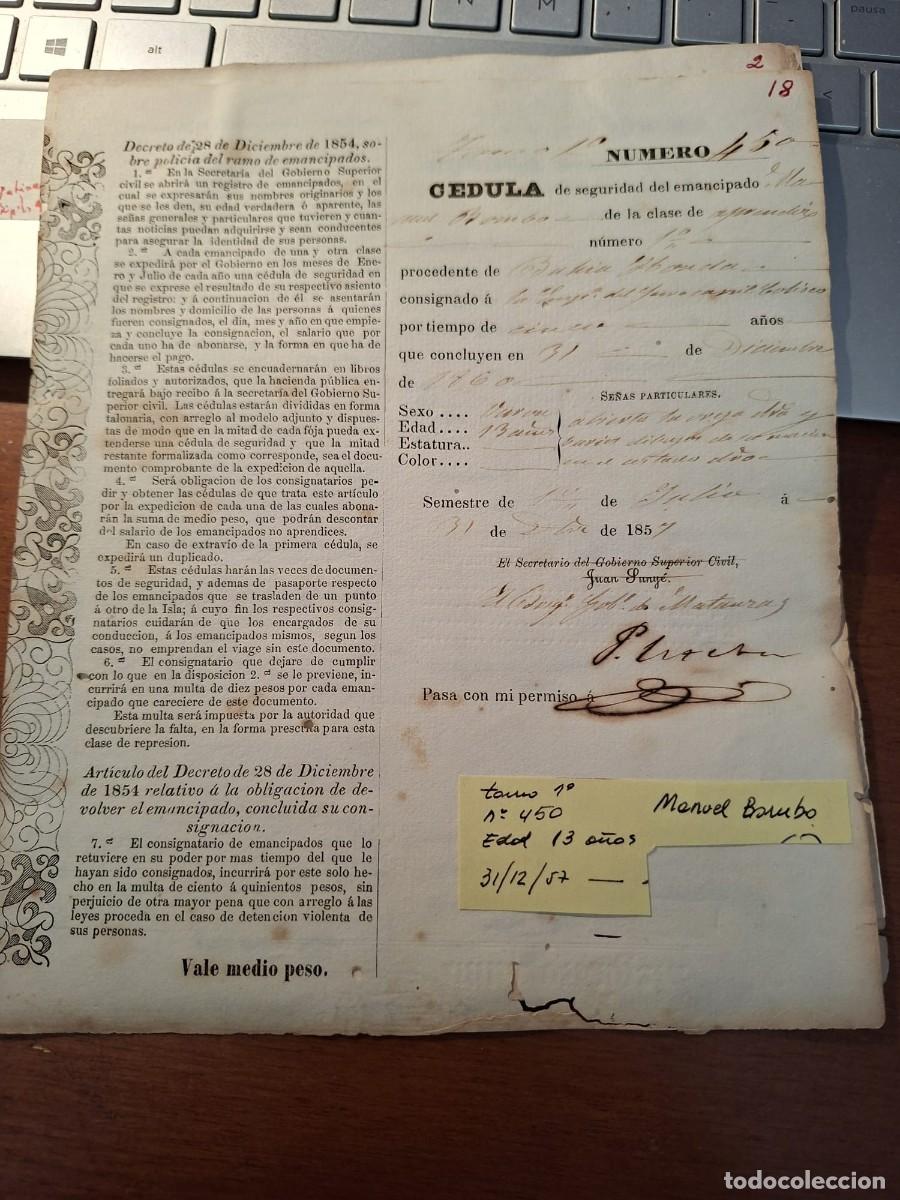 2
18
Decreto de 28 de Diciembre de 1854, so-
bre policia del ramo de emancipados.
1.ª En la Secretaría del Gobierno Superior
civil se abrirá un registro de emancipados, en el
cual se expresarán sus nombres originarios y los
que se les den, su edad verdadera ó aparente, las
señas generales y particulares que tuvieren y cuan-
tas noticias puedan adquirirse y sean conducentes
para asegurar la identidad de sus personas.
2.ª A cada emancipado de una y otra clase
se expedirá por el Gobierno en los meses de Ene-
ro y Julio de cada año una cédula de seguridad en
que se exprese el resultado de su respectivo asiento
del registro: y á continuacion de él se asentarán
los nombres y domicilio de las personas á quienes
fueren consignados, el dia, mes y año en que empie-
za y concluye la consignacion, el salario que por
cada uno ha de abonarse, y la forma en que ha de
hacerse el pago.
3.ª Estas cédulas se encuadernarán en libros
foliados y autorizados, que la hacienda pública en-
tregará bajo recibo á la secretaría del Gobierno Su-
perior civil. Las cédulas estarán divididas en forma
talonaria, con arreglo al modelo adjunto y dispues-
tas de modo que en la mitad de cada fója pueda ex-
tenderse una cédula de seguridad y que la mitad
restante formalizada como corresponde, sea el docu-
mento comprobante de la expedicion de aquella.
4.ª Será obligacion de los consignatarios pe-
dir y obtener las cédulas de que trata este artículo
por la expedicion de cada una de las cuales abona-
rán la suma de medio peso, que podrán descontar
del salario de los emancipados no aprendices.
En caso de extravío de la primera cédula, se
expedirá un duplicado.
5.ª Estas cédulas harán las veces de documen-
tos de seguridad, y ademas de pasaporte respecto
de los emancipados que se trasladen de un punto
á otro de la Isla; á cuyo fin los respectivos consig-
natarios cuidarán de que los encargados de su
conduccion, á los emancipados mismos, segun los
casos, no emprendan el viage sin este documento.
6.ª El consignatario que dejare de cumplir
con lo que en la disposicion 2.ª se le previene, in-
currirá en una multa de diez pesos por cada eman-
cipado que careciere de este documento.
Esta multa será impuesta por la autoridad que
descubriere la falta, en la forma prescrita para esta
clase de represion.
Artículo del Decreto de 28 de Diciembre
de 1854 relativo á la obligacion de de-
volver el emancipado, concluida su con-
signacion.
7.ª El consignatario de emancipados que lo
retuviere en su poder por mas tiempo del que le
hayan sido consignados, incurrirá por este solo he-
cho en la multa de ciento á quinientos pesos, sin
perjuicio de otra mayor pena que con arreglo á las
leyes proceda en el caso de detencion violenta de
sus personas.
Vale medio peso.
1º NUMERO 450
CEDULA de seguridad del emancipado Ma-
nuel Bombo de la clase de aprendiz
número 1º
procedente de Bahia Honda
consignado á
por tiempo de cinco años
que concluyen en 31 de Diciembre
de 1860
SEÑAS PARTICULARES.
Sexo .... Varon
Edad .... 13 años
Estatura..
Color....
abierta la oreja dra y
varios dibujos de su nacion
en el costado dro
Semestre de 1º de Julio á
31 de Dbre de 1857
El Secretario del Gobierno Superior Civil,
Juan Sunyé.
Gobr de Matanzas
Pasa con mi permiso á
tomo 1º
nº 450
Edad 13 años
31/12/57
Manuel Bombo
alt
N
M
pausa
todocoleccion